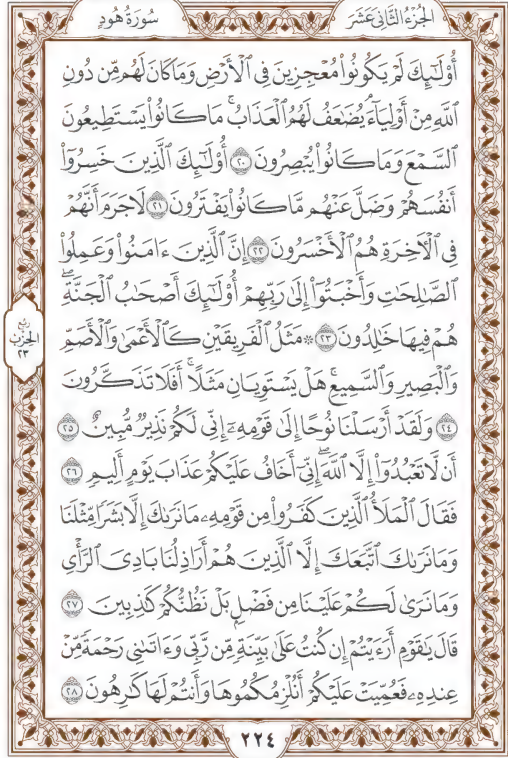 الجُزْءُ الثَّانِي عَشَرَ
سُورَةُ هُودٍ
أُوْلَٰٓئِكَ لَمْ يَكُونُواْ مُعْجِزِينَ فِي ٱلْأَرْضِ وَمَا كَانَ لَهُم مِّن دُونِ
ٱللَّهِ مِنْ أَوْلِيَآءَۘ يُضَٰعَفُ لَهُمُ ٱلْعَذَابُۚ مَا كَانُواْ يَسْتَطِيعُونَ
ٱلسَّمْعَ وَمَا كَانُواْ يُبْصِرُونَ ٢٠ أُوْلَٰٓئِكَ ٱلَّذِينَ خَسِرُوٓاْ
أَنفُسَهُمْ وَضَلَّ عَنْهُم مَّا كَانُواْ يَفْتَرُونَ ٢١ لَا جَرَمَ أَنَّهُمْ
فِي ٱلْأٓخِرَةِ هُمُ ٱلْأَخْسَرُونَ ٢٢ إِنَّ ٱلَّذِينَ ءَامَنُواْ وَعَمِلُواْ
ٱلصَّٰلِحَٰتِ وَأَخْبَتُوٓاْ إِلَىٰ رَبِّهِمْ أُوْلَٰٓئِكَ أَصْحَٰبُ ٱلْجَنَّةِۖ
هُمْ فِيهَا خَٰلِدُونَ ٢٣ ۞ مَثَلُ ٱلْفَرِيقَيْنِ كَٱلْأَعْمَىٰ وَٱلْأَصَمِّ
وَٱلْبَصِيرِ وَٱلسَّمِيعِۚ هَلْ يَسْتَوِيَانِ مَثَلًاۚ أَفَلَا تَذَكَّرُونَ
٢٤ وَلَقَدْ أَرْسَلْنَا نُوحًا إِلَىٰ قَوْمِهِۦٓ إِنِّي لَكُمْ نَذِيرٌ مُّبِينٌ ٢٥
أَن لَّا تَعْبُدُوٓاْ إِلَّا ٱللَّهَۖ إِنِّيٓ أَخَافُ عَلَيْكُمْ عَذَابَ يَوْمٍ أَلِيمٍ ٢٦
فَقَالَ ٱلْمَلَأُ ٱلَّذِينَ كَفَرُواْ مِن قَوْمِهِۦ مَا نَرَىٰكَ إِلَّا بَشَرًا مِّثْلَنَا
وَمَا نَرَىٰكَ ٱتَّبَعَكَ إِلَّا ٱلَّذِينَ هُمْ أَرَاذِلُنَا بَادِيَ ٱلرَّأْيِ
وَمَا نَرَىٰ لَكُمْ عَلَيْنَا مِن فَضْلٍۭ بَلْ نَظُنُّكُمْ كَٰذِبِينَ ٢٧
قَالَ يَٰقَوْمِ أَرَءَيْتُمْ إِن كُنتُ عَلَىٰ بَيِّنَةٍ مِّن رَّبِّي وَءَاتَىٰنِي رَحْمَةً مِّنْ
عِندِهِۦ فَعُمِّيَتْ عَلَيْكُمْ أَنُلْزِمُكُمُوهَا وَأَنتُمْ لَهَا كَٰرِهُونَ ٢٨
ربع
الحزب
٢٣
٢٢٤